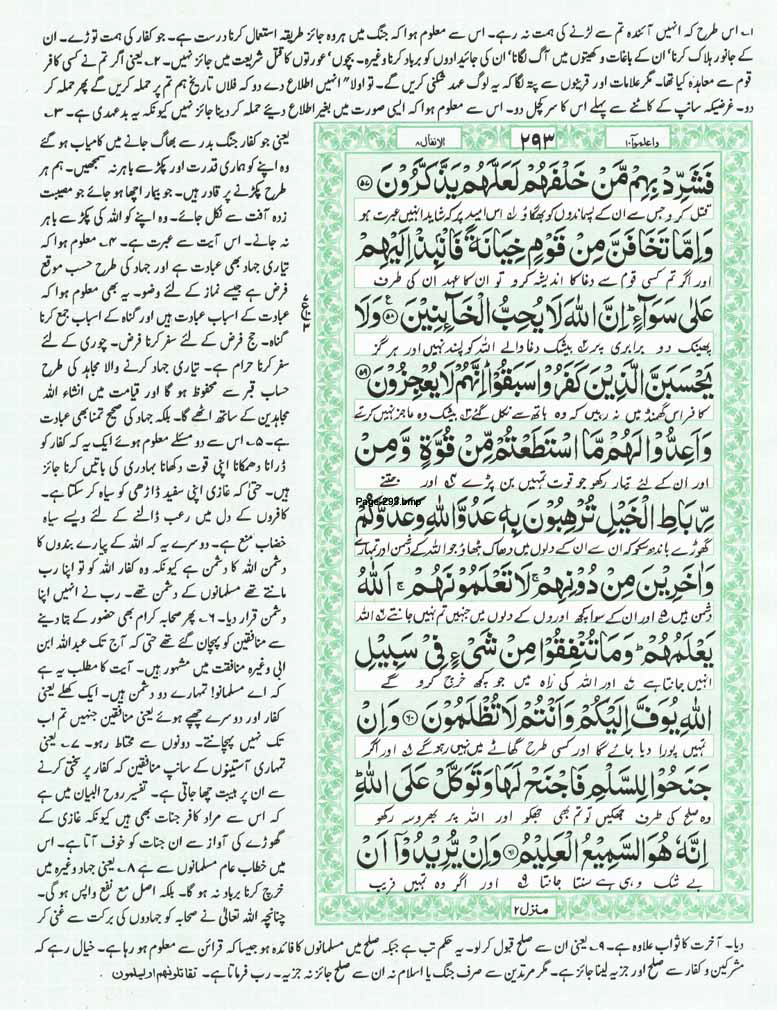 ۱؎ اس طرح کہ انہیں آئندہ تم سے لڑنے کی ہمت نہ رہے۔ اس سے معلوم ہوا کہ جنگ میں ہر وہ جائز طریقہ استعمال کرنا درست ہے۔ جو کفار کی ہمت توڑے۔ ان
کے جانور ہلاک کرنا' ان کے باغات و کھیتوں میں آگ لگانا' ان کی جائیدادوں کو برباد کرنا وغیرہ۔ بچوں' عورتوں کا قتل شریعت میں جائز نہیں۔ ۲؎ یعنی اگر تم نے کسی کافر
قوم سے معاہدہ کیا تھا۔ مگر علامات اور قرینوں سے پتہ لگا کہ یہ لوگ عہد شکنی کریں گے۔ تو اولا" انہیں اطلاع دے دو کہ فلاں تاریخ ہم تم پر حملہ کریں گے پھر حملہ کر
دو۔ غرضیکہ سانپ کے کاٹنے سے پہلے اس کا سر کچل دو۔ اس سے معلوم ہوا کہ ایسی صورت میں بغیر اطلاع دیئے حملہ کر دینا جائز نہیں کیونکہ یہ بدعہدی ہے۔ ۳؎
واعلموآ۱۰
۲۹۳
الانفال۸
فَشَرِّدْ بِهِمْ مَّنْ خَلْفَهُمْ لَعَلَّهُمْ يَذَّكَّرُوْنَ ۵۷
قتل کرو جس سے ان کے پسماندوں کو بھگاؤ ۱؎ اس امید پر کہ شاید انہیں عبرت ہو
وَاِمَّا تَخَافَنَّ مِنْ قَوْمٍ خِيَانَةً فَانْۢبِذْ اِلَيْهِمْ
اور اگر تم کسی قوم سے دغا کا اندیشہ کرو تو ان کا عہد ان کی طرف
عَلٰى سَوَآءٍ ؕ اِنَّ اللّٰهَ لَا يُحِبُّ الْخَآئِنِيْنَ ۵۸ وَلَا
پھینک دو برابری پر ۲؎ بیشک دغا والے اللہ کو پسند نہیں اور ہرگز
يَحْسَبَنَّ الَّذِيْنَ كَفَرُوْا سَبَقُوْا ؕ اِنَّهُمْ لَا يُعْجِزُوْنَ ۵۹
کافر اس گھمنڈ میں نہ رہیں کہ وہ ہاتھ سے نکل گئے ۳؎ بیشک وہ عاجز نہیں کرتے
وَاَعِدُّوْا لَهُمْ مَّا اسْتَطَعْتُمْ مِّنْ قُوَّةٍ وَّمِنْ
اور ان کے لئے تیار رکھو جو قوت تمہیں بن پڑے ۴؎ اور جتنے
Page-293.bmp
رِّبَاطِ الْخَيْلِ تُرْهِبُوْنَ بِهٖ عَدُوَّ اللّٰهِ وَعَدُوَّكُمْ
گھوڑے باندھ سکو کہ ان سے ان کے دلوں میں دھاک بٹھاؤ جو اللہ کے دشمن اور تمہارے
وَاٰخَرِيْنَ مِنْ دُوْنِهِمْ ۚ لَا تَعْلَمُوْنَهُمْ ۚ اَللّٰهُ
دشمن ہیں ۵؎ اور ان کے سوا کچھ اوروں کے دلوں میں جنہیں تم نہیں جانتے ۶؎ اللہ
يَعْلَمُهُمْ ؕ وَمَا تُنْفِقُوْا مِنْ شَيْءٍ فِيْ سَبِيْلِ
انہیں جانتا ہے ۷؎ اور اللہ کی راہ میں جو کچھ خرچ کرو گے
اللّٰهِ يُوَفَّ اِلَيْكُمْ وَاَنْتُمْ لَا تُظْلَمُوْنَ ۶۰ وَاِنْ
تمہیں پورا دیا جائے گا اور کسی طرح گھاٹے میں نہیں رہو گے ۸؎ اور اگر
جَنَحُوْا لِلسَّلْمِ فَاجْنَحْ لَهَا وَتَوَكَّلْ عَلَى اللّٰهِ ؕ
وہ صلح کی طرف جھکیں تو تم بھی جھکو اور اللہ پر بھروسہ رکھو
اِنَّهٗ هُوَ السَّمِيْعُ الْعَلِيْمُ ۶۱ وَاِنْ يُّرِيْدُوْٓا اَنْ
بے شک وہی ہے سنتا جانتا ۹؎ اور اگر وہ تمہیں فریب
منزل۲
یعنی جو کفار جنگ بدر سے بھاگ جانے میں کامیاب ہو گئے
وہ اپنے کو ہماری قدرت اور پکڑ سے باہر نہ سمجھیں۔ ہم ہر
طرح پکڑنے پر قادر ہیں۔ جو بیمار اچھا ہو جائے جو مصیبت
زدہ آفت سے نکل جائے۔ وہ اپنے کو اللہ کی پکڑ سے باہر
نہ جانے۔ اس آیت سے عبرت ہے۔ ۴؎ معلوم ہوا کہ
تیاری جہاد بھی عبادت ہے اور جہاد کی طرح حسب موقع
فرض ہے جیسے نماز کے لئے وضو۔ یہ بھی معلوم ہوا کہ
عبادت کے اسباب عبادت ہیں اور گناہ کے اسباب جمع کرنا
گناہ۔ حج فرض کے لئے سفر کرنا فرض۔ چوری کے لئے
سفر کرنا حرام ہے۔ تیاری جہاد کرنے والا مجاہد کی طرح
حساب قبر سے محفوظ ہو گا اور قیامت میں انشاء اللہ
مجاہدین کے ساتھ اٹھے گا۔ بلکہ جہاد کی صحیح تمنا بھی عبادت
ہے۔ ۵؎ اس سے دو مسئلے معلوم ہوئے ایک یہ کہ کفار کو
ڈرانا دھمکانا اپنی قوت دکھانا بہادری کی باتیں کرنا جائز
ہیں۔ حتیٰ کہ غازی اپنی سفید داڑھی کو سیاہ کر سکتا ہے۔
کافروں کے دل میں رعب ڈالنے کے لئے ویسے سیاہ
خضاب منع ہے۔ دوسرے یہ کہ اللہ کے پیارے بندوں کا
دشمن اللہ کا دشمن ہے کیونکہ وہ کفار اللہ کو تو اپنا رب
مانتے تھے مسلمانوں کے دشمن تھے۔ رب نے انہیں اپنا
دشمن قرار دیا۔ ۶؎ پھر صحابہ کرام بھی حضور کے بتا دینے
سے منافقین کو پہچان گئے تھے حتی کہ آج تک عبداللہ ابن
ابی وغیرہ منافقت میں مشہور ہیں۔ آیت کا مطلب یہ ہے
کہ اے مسلمانو! تمہارے دو دشمن ہیں۔ ایک کھلے یعنی
کفار اور دوسرے چھپے ہوئے یعنی منافقین جنہیں تم اب
تک نہیں پہچانتے۔ دونوں سے محتاط رہو۔ ۷؎ یعنی
تمہاری آستینوں کے سانپ منافقین کہ کفار پر سختی کرنے
سے ان پر ہیبت چھا جاتی ہے۔ تفسیر روح البیان میں ہے
کہ اس سے مراد کافر جنات بھی ہیں کیونکہ غازی کے
گھوڑے کی آواز سے ان جنات کو خوف آتا ہے۔ اس
میں خطاب عام مسلمانوں سے ہے ۸؎ یعنی جہاد وغیرہ میں
خرچ کرنا برباد نہ ہو گا۔ بلکہ اصل مع نفع واپس ہو گی۔
چنانچہ اللہ تعالیٰ نے صحابہ کو جہادوں کی برکت سے غنی کر
دیا۔ آخرت کا ثواب علاوہ ہے۔ ۹؎ یعنی ان سے صلح قبول کر لو۔ یہ حکم تب ہے جبکہ صلح میں مسلمانوں کا فائدہ ہو جیسا کہ قرائن سے معلوم ہو رہا ہے۔ خیال رہے کہ
مشرکین و کفار سے صلح اور جزیہ لینا جائز ہے۔ مگر مرتدین سے صرف جنگ یا اسلام نہ ان سے صلح جائز نہ جزیہ۔ رب فرماتا ہے۔ تقاتلونهم اویسلمون